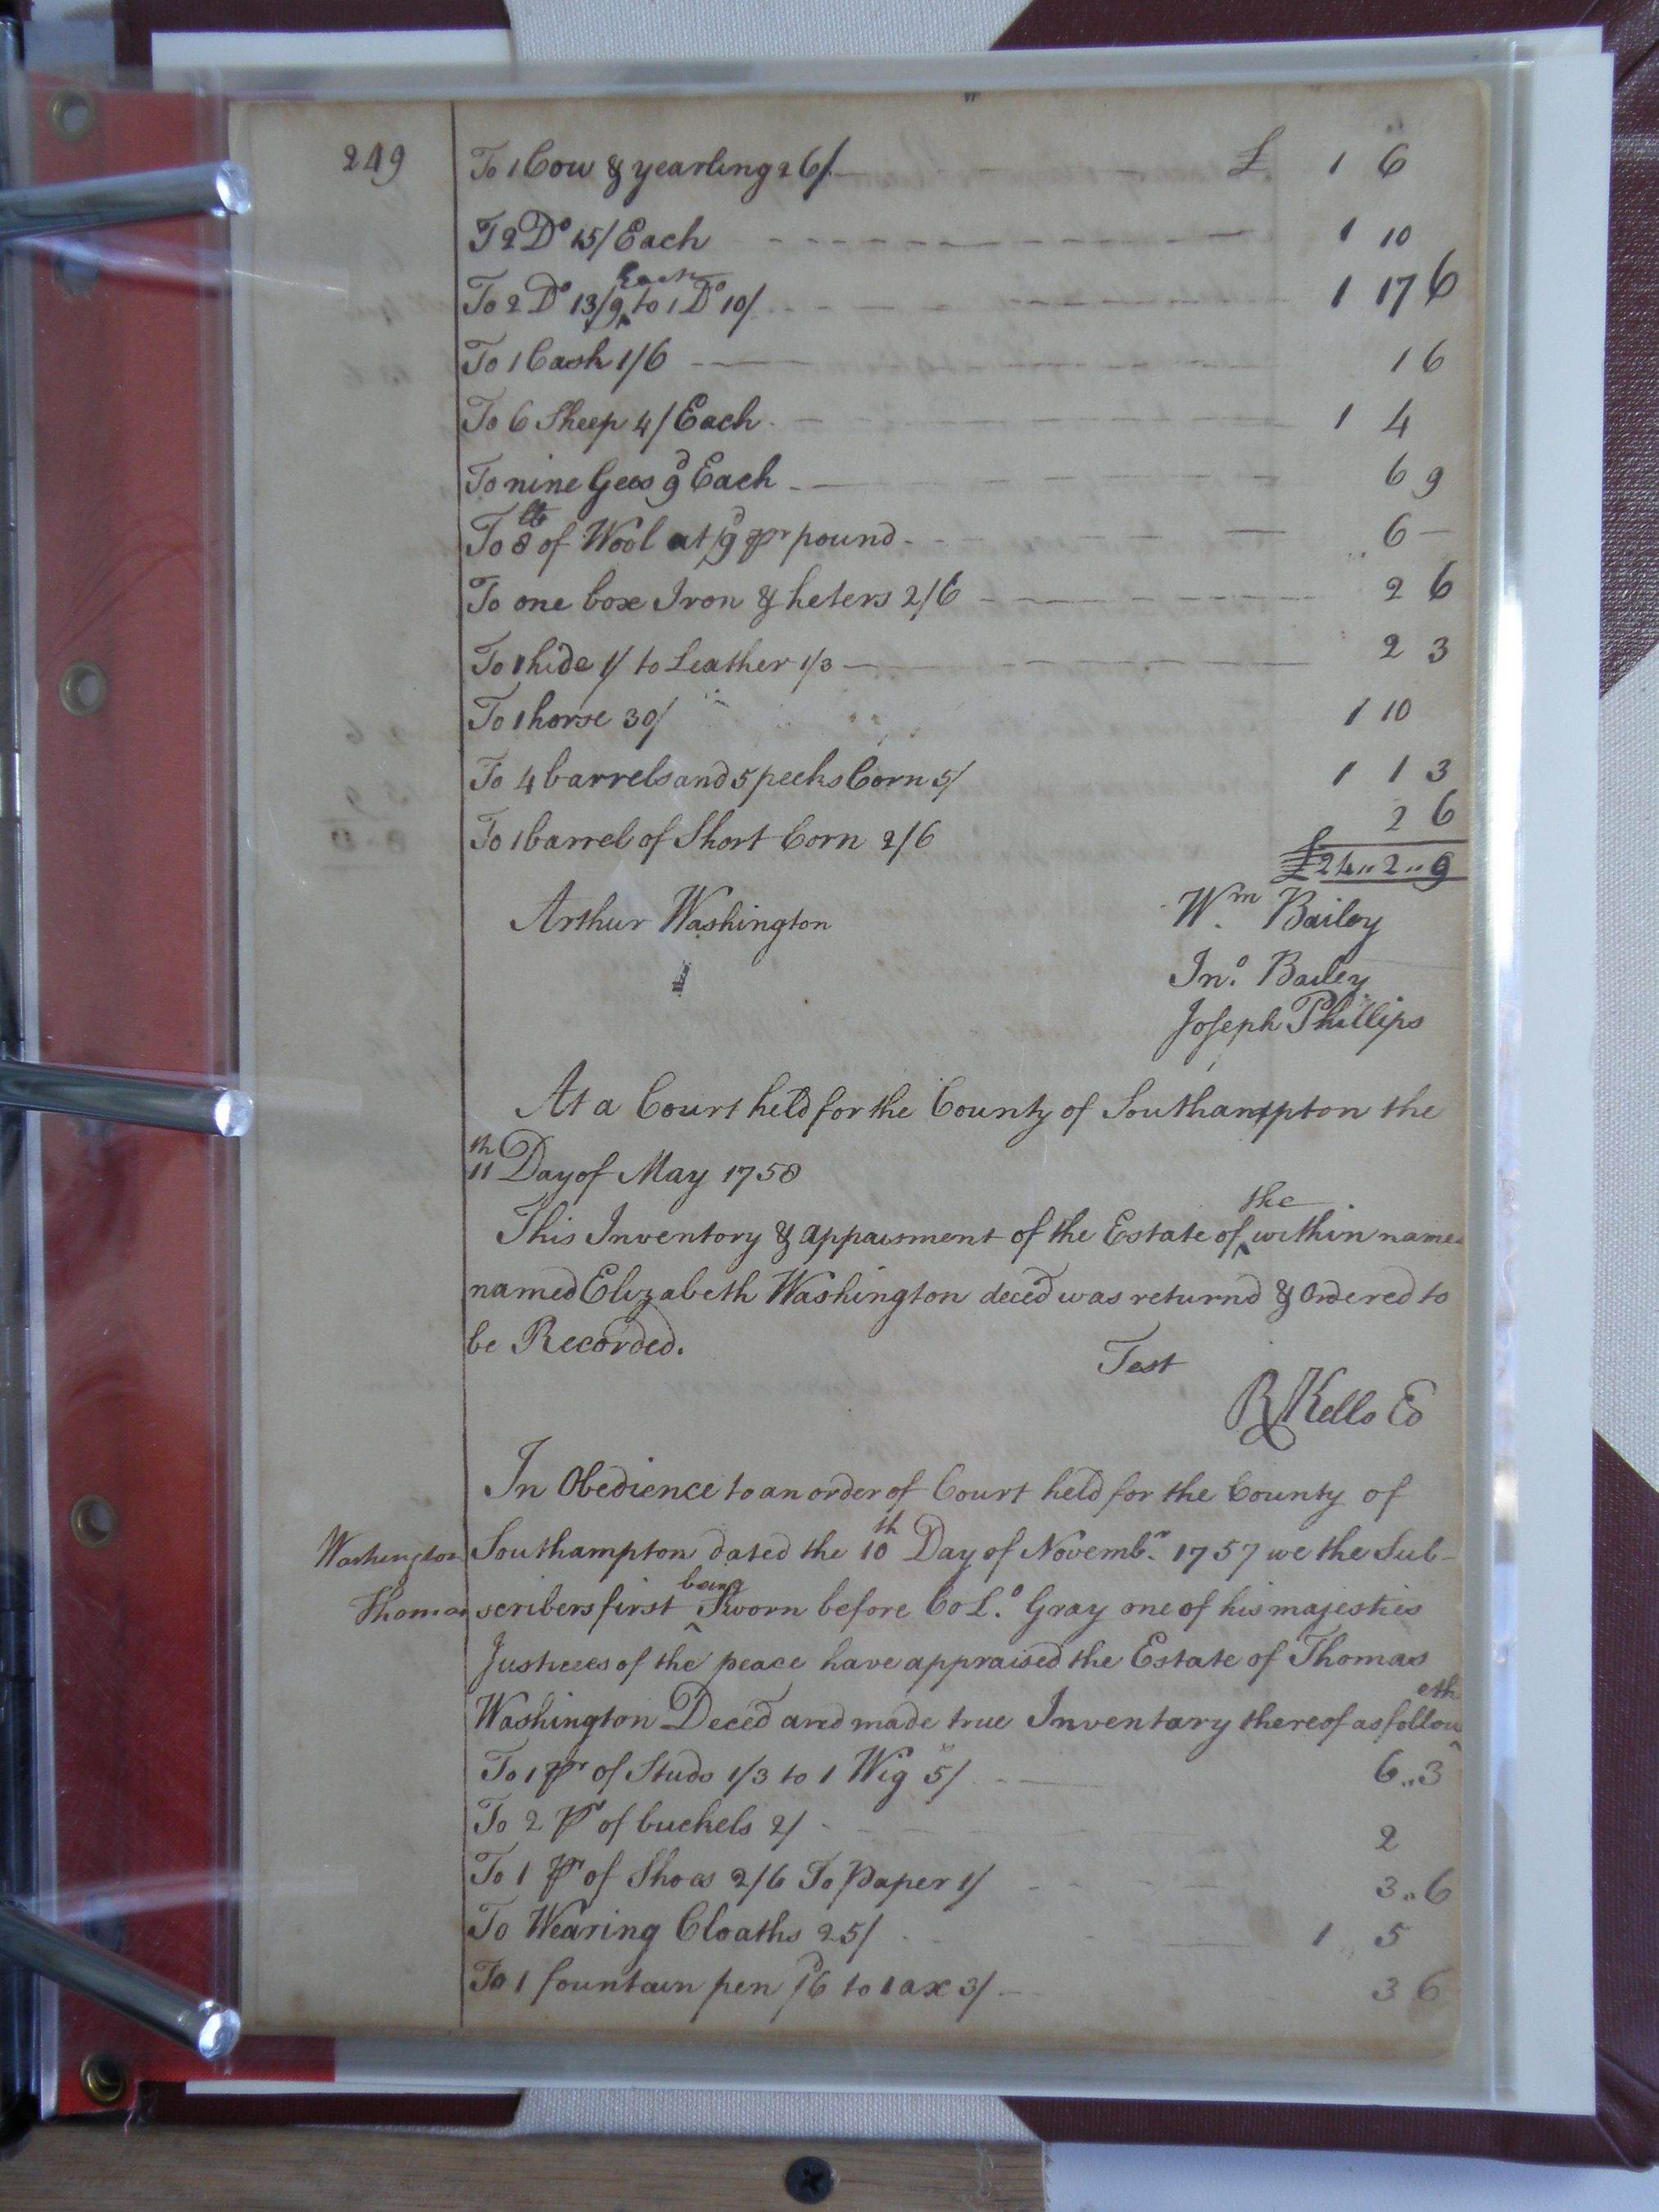 249 To 1 Cow & yearling 26/ £ 1 6
To 2 Do 15/ Each 1 10
To 2 Do 13/9 Each to 1 Do 10/ 1 17 6
To 1 Cash 1/6 1 6
To 6 Sheep 4/ Each 1 4
To nine Gees 9d Each 6 9
To 8 lb of Wool at /9d pr pound 6 —
To one box Iron & heters 2/6 2 6
To 1 hide 1/ to Leather 1/3 2 3
To 1 horse 30/ 1 10
To 4 barrels and 5 pecks Corn 5/ 1 1 3
To 1 barrel of Short Corn 2/6 2 6
£24 " 2 " 9
Arthur Washington Wm. Bailey
Jno. Bailey
Joseph Phillips
At a Court held for the County of Southampton the
11th Day of May 1758
This Inventory & appaisment of the Estate of the within named
named Elizabeth Washington deced was returnd & Ordered to
be Recorded.
Test
R Kello
In Obedience to an order of Court held for the County of
Washington Southampton dated the 10th Day of Novembr. 1757 we the Sub-
Thomas scribers first being Sworn before CoLo. Gray one of his majesties
Justices of the peace have appraised the Estate of Thomas
Washington Deced and made true Inventary thereof as followeth
To 1 pr of Studs 1/3 to 1 Wig 5/ 6 " 3
To 2 pr of buckels 2/ 2
To 1 pr of Shoes 2/6 To paper 1/ 3 " 6
To Wearing Cloaths 25/ 1 " 5
To 1 fountain pen /6d to 1 ax 3/ 3 6